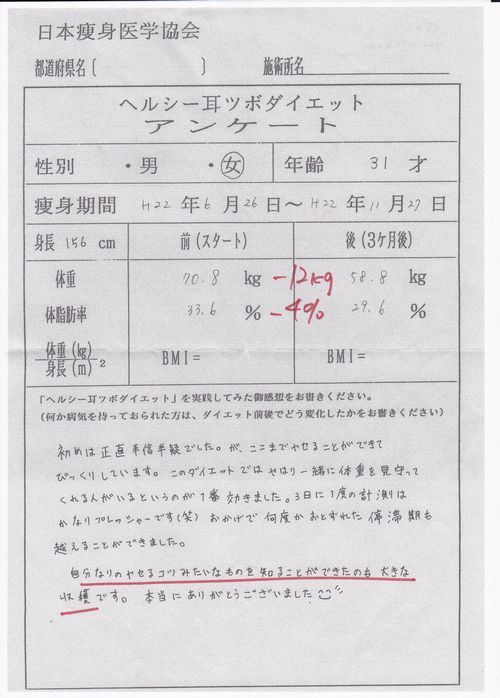 日本痩身医学協会
都道府県名〔　　　　　　〕　　施術所名
ヘルシー耳ツボダイエット
アンケート
性別　・男　・女　年齢　31　才
痩身期間　H22 年 6 月 26 日～ H22 年 11 月 27 日
身長 156 cm　前(スタート)　後(3ケ月後)
体重　70.8 kg　-12kg　58.8 kg
体脂肪率　33.6 %　-4%　29.6 %
体重(kg)
身長(m) 2　BMI=　BMI=
「ヘルシー耳ツボダイエット」を実践してみた御感想をお書きください。
(何か病気を持っておられた方は、ダイエット前後でどう変化したかをお書きください)
初めは正直半信半疑でした。が、ここまでヤセることができて
びっくりしています。このダイエットではやはり一緒に体重を見守って
くれる人がいるというのが1番効きました。3日に1度の計測は
かなりプレッシャーです(笑) おかげで何度かおとずれた停滞期も
越えることができました。
自分なりのヤセるコツみたいなものを知ることができたのも大きな
収穫です。本当にありがとうございました